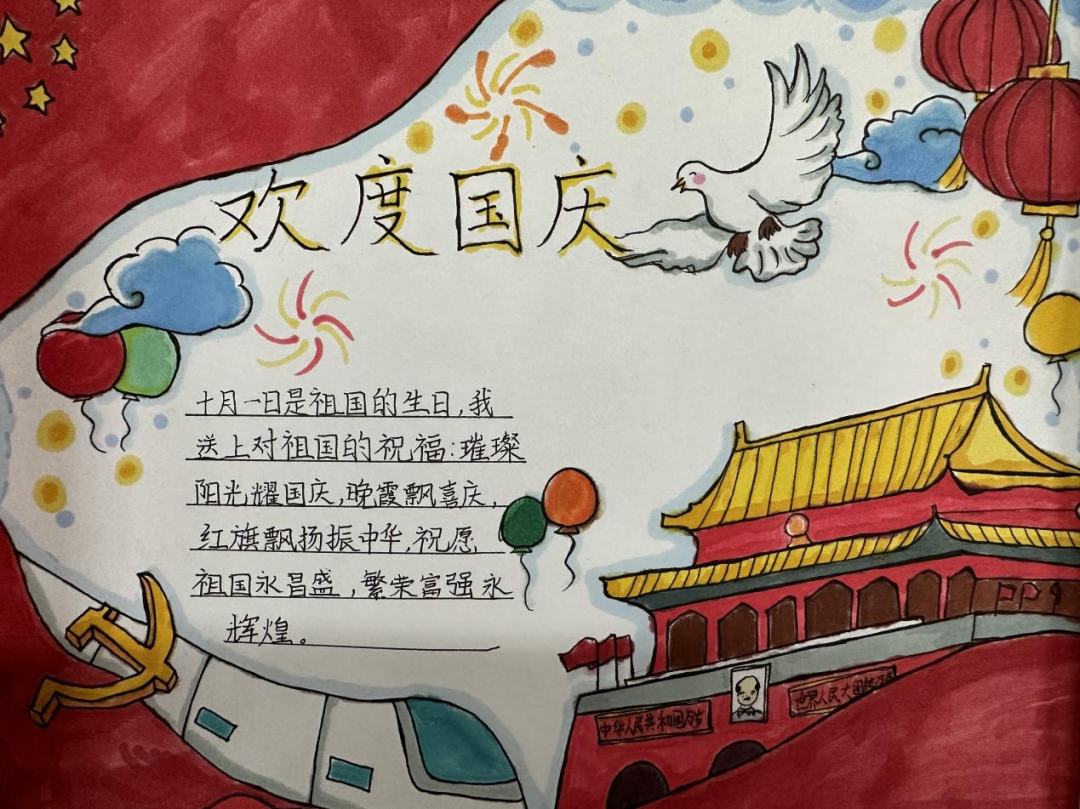 欢度国庆
十月一日是祖国的生日,我
送上对祖国的祝福:璀璨
阳光耀国庆,晚霞飘喜庆,
红旗飘扬振中华,祝愿
祖国永昌盛,繁荣富强永
辉煌。
中华人民共和国万岁
世界人民大团结万岁